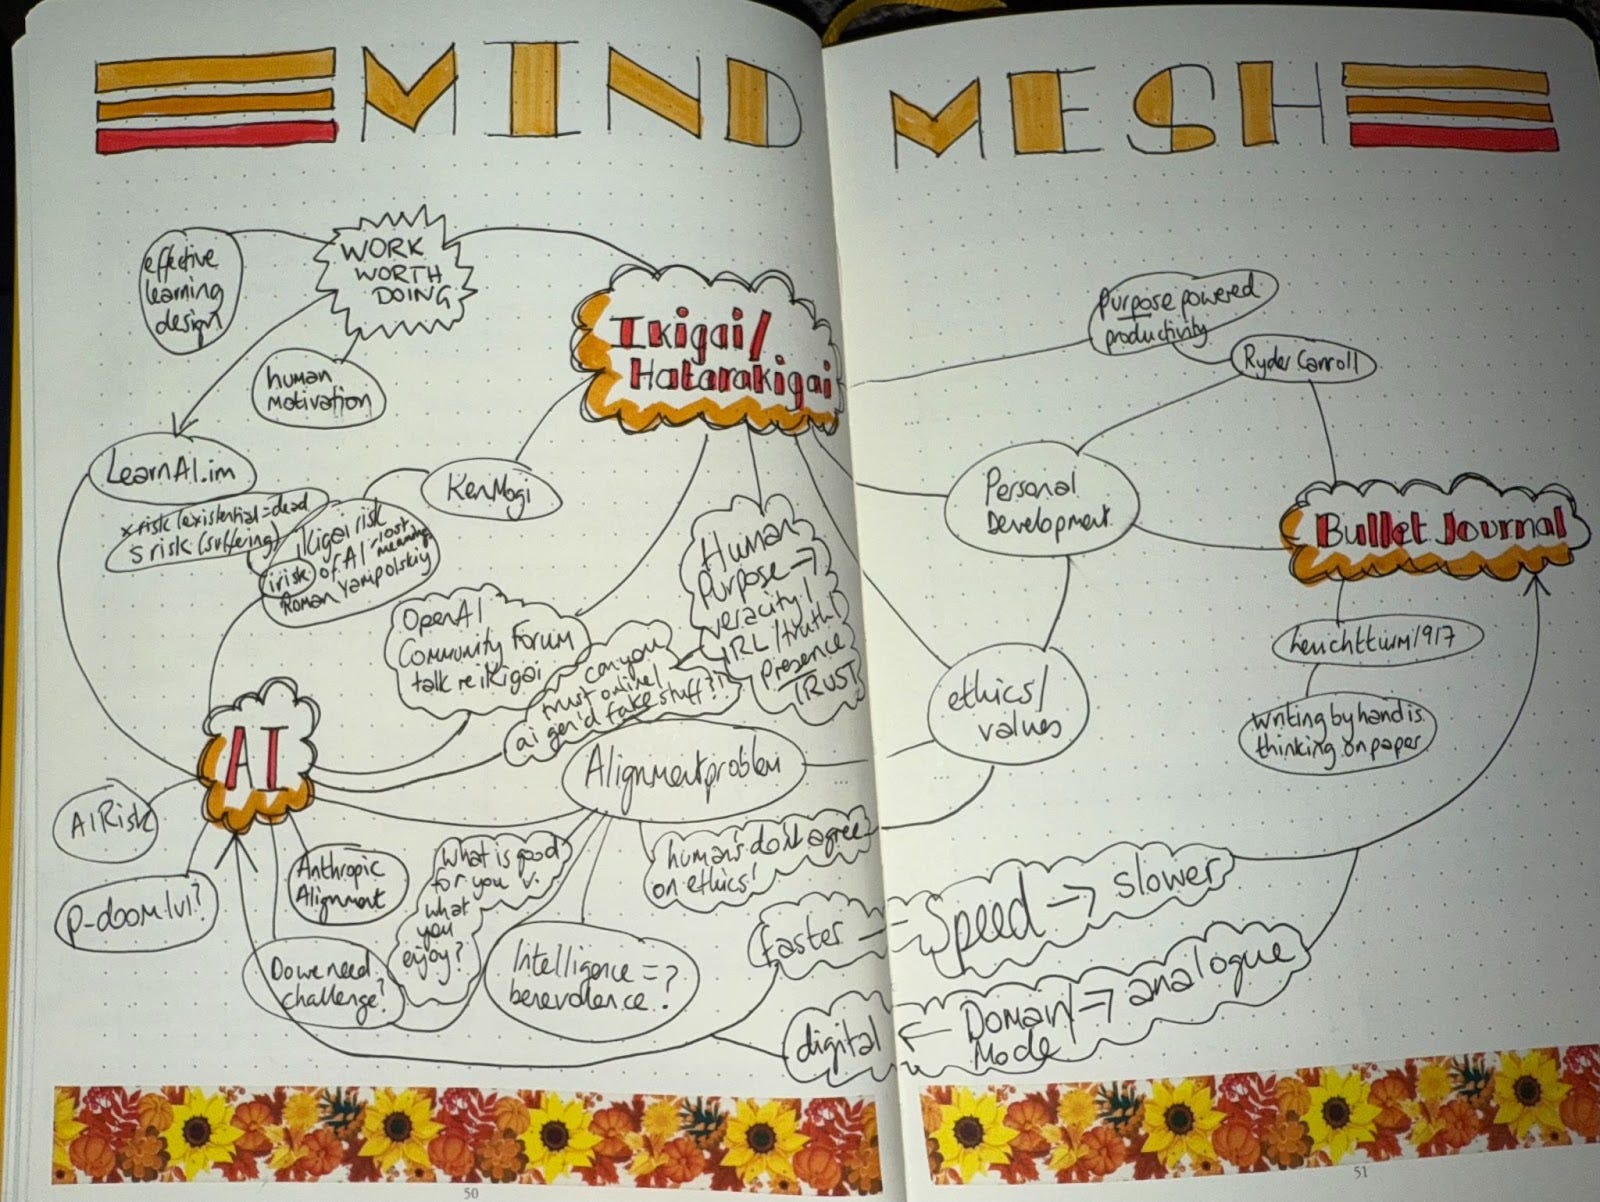 MIND MESH
effective
learning
design
WORK
WORTH
DOING
human
motivation
Ikigai/
Hatarakigai
purpose powered
productivity
Ryder Carroll
LearnAI.im
Ken Mogi
x risk (existential = dead
s risk (suffering)
ikigai risk
of AI
lost
meaning
irisk
Roman Yampolskiy
Personal
Development
Bullet Journal
Human
Purpose →
veracity/
IRL/truth/
presence
TRUST
OpenAI
Community Forum
talk re ikigai
can you
trust online/
ai gen'd fake stuff??
ethics/
values
Leuchtturm1917
writing by hand is
thinking on paper
AI
Alignment problem
AI Risk
p-doom lvl?
Anthropic
Alignment
What is good
for you v.
what
you
enjoy?
humans don't agree
on ethics!
Do we need
challenge?
Intelligence = ?
benevolence
faster ← Speed → slower
digital ← Domain/ → analogue
Mode
50
51